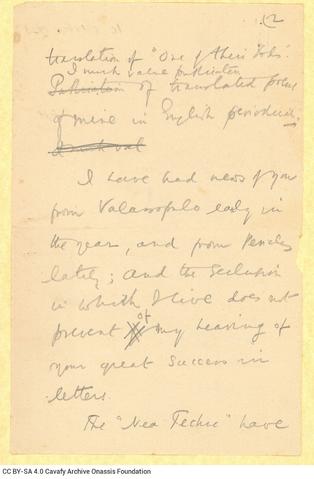 (2
translation of "One of their Gods".
I much value publication
Publication of translated poems
of mine in English periodicals.
I much val
I have had news of you
from Valassopulo early in
the year, and from Pericles
lately; and the seclusion
in which I live does not
prevent of my hearing of
your great success in
letters.
The "Nea Techne" have
CC BY-SA 4.0 Cavafy Archive Onassis Foundation